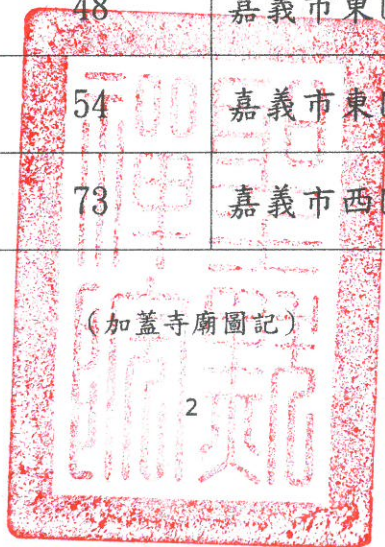 48 嘉義市東
54 嘉義市東
73 嘉義市西
(加蓋寺廟圖記)
2